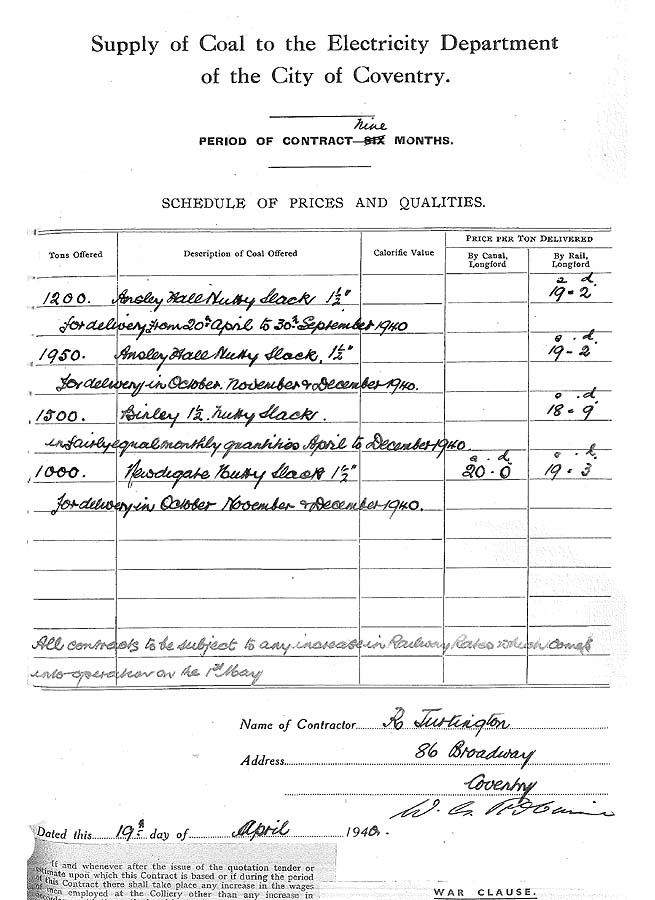 Supply of Coal to the Electricity Department
of the City of Coventry.
Nine
PERIOD OF CONTRACT—SIX MONTHS.
SCHEDULE OF PRICES AND QUALITIES.
Tons Offered Description of Coal Offered Calorific Value PRICE PER TON DELIVERED
By Canal, Longford By Rail, Longford
s. d.
1200. Ansley Hall Nutty Slack 1½" 19-2
for delivery from 20th April to 30th September 1940
s. d.
1950. Ansley Hall Nutty Slack, 1½" 19-2
for delivery in October. November & December 1940.
s. d.
1500. Binley 1½ Nutty Slack. 18-9
in fairly equal monthly quantities April to December 1940.
s. d. s. d.
1000. Newdigate Nutty Slack 1½" 20-0 19-3
for delivery in October November & December 1940.
All contracts to be subject to any increase in Railway Rates which comes
into operation on the 1st May
Name of Contractor R Turtington
Address 86 Broadway
Coventry
W. G.
Dated this 19th day of April 1940.
If and whenever after the issue of the quotation tender or
estimate upon which this Contract is based or if during the period
of this Contract there shall take place any increase in the wages
men employed at the Colliery other than any increase in
WAR CLAUSE.